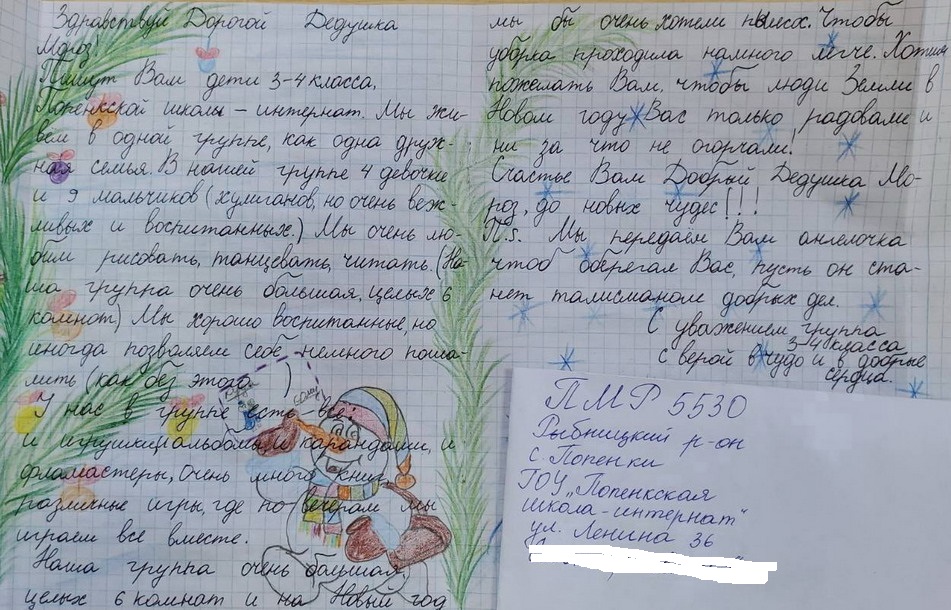 Здравствуй Дорогой Дедушка
Мороз!
Пишут Вам дети 3-4 класса,
Попенкской школы – интернат. Мы жи-
вём в одной группе, как одна друж-
ная семья. В нашей группе 4 девочки
и 9 мальчиков (хулиганов, но очень веж-
ливых и воспитанных.) Мы очень лю-
бим рисовать, танцевать, читать. (На-
ша группа очень большая, целых 6
комнат) Мы хорошо воспитанные, но
иногда позволяем себе немного поша-
лить (как без этого )
У нас в группе есть все:
и игрушки, и альбомы, и карандаши, и
фламастеры, Очень много книг,
различные игры, где по вечерам мы
играем все вместе.
Наша группа очень большая,
целых 6 комнат и на Новый год
мы бы очень хотели пылесос. Чтобы
уборка проходила намного легче. Хотим
пожелать Вам, чтобы люди Земли в
Новом году Вас только радовали и
ни за что не огорчали!
Счастье Вам Добрый Дедушка Мо-
роз, до новых чудес!!!
П.s. Мы передаём Вам ангелочка
чтоб оберегал Вас, пусть он ста-
нет талисманом добрых дел.
С уважением группа
3-4 класса
с верой в чудо и в добрые
сердца.
ПМР 5530
Рыбницкий р-он
с. Попенки
ГОУ „Попенкская
школа-интернат"
ул. Ленина 36